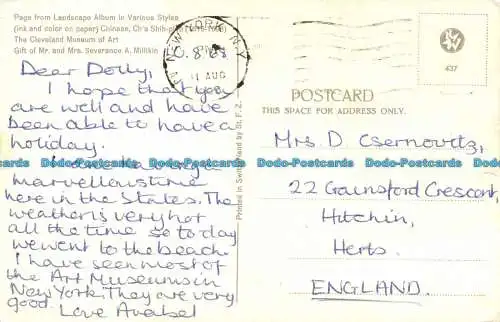 Page from Landscape Album in Various Styles
(ink and color on paper) Chinese, Ch'a Shih-
The Cleveland Museum of Art
Gift of Mr. and Mrs. Severance A. Millikin
NEW YORK, N.Y.
11 AUG
437
POSTCARD
THIS SPACE FOR ADDRESS ONLY.
Printed in Switzerland by St. F. Z.
Dear Dolly,
I hope that you
are well and have
been able to have a
holiday.
I am having a
marvellous time
here in the States. The
weather is very hot
all the time so to day
we went to the beach.
I have seen most of
the Art Museums in
New York. They are very
good. Love Anabel
Mrs. D Csernovitz,
22 Gainsford Crescent,
Hitchin,
Herts.
ENGLAND.
Dodo-Postcards Dodo-Postcards Dodo-Postcards Dodo-Postcards Dodo-Postcards